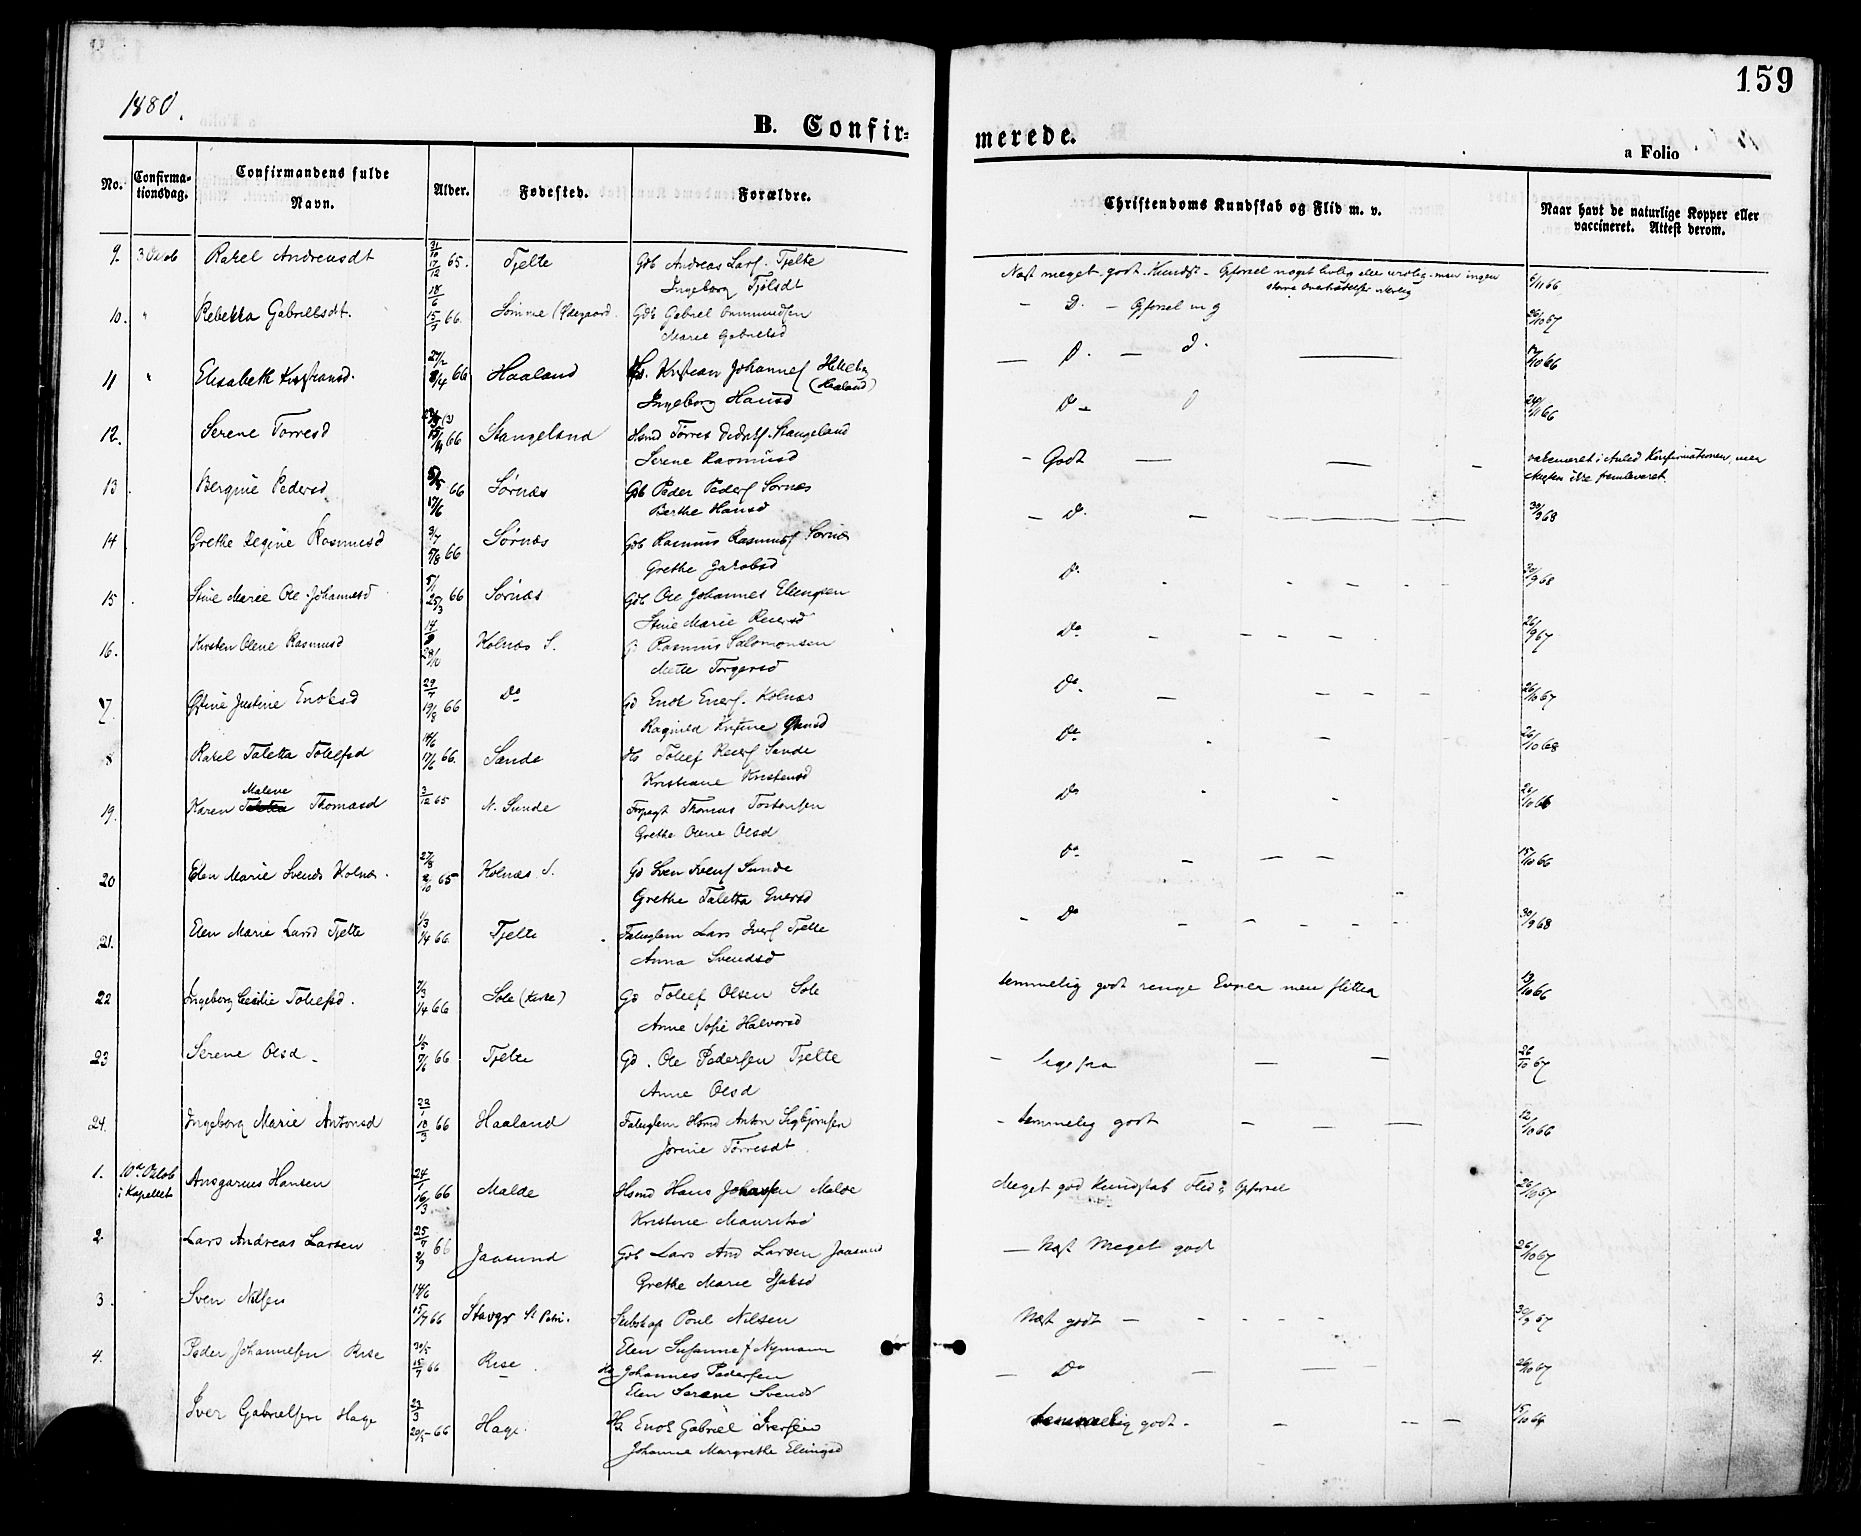 159
1880.
B. Confir-
merede.
a Folio
No.
Confirma-
tionsdag.
Confirmandens fulde
Navn.
Alder.
Fødested.
Forældre.
Christendoms Kundskab og Flid m. v.
Naar havt de naturlige Kopper eller
vaccineret. Attest derom.
9. 3 Oktob Rakel Andreasdt 31/10 17/12 65. Tjelte Gdb Andreas Lars. Tjelte
Ingeborg
Næst meget godt Kundsk - Opførsel noget men ingen
6/11 66
10. " Rebekka Gabrielsdt. 18/6 15/7 66. Sømme (Ødegaard Gdb Gabriel
Marie Gabrielsd
- D. - Opførsel m g 26/10 67
11 " Elisabeth Kristiansd. 27/2 8/4 66 Haaland Kristian Johannes
(Haaland)
Ingeborg Hansd
— D. — D. — 10 66
12. Serene Torresd 66 Stangeland Hsmd Torres Stangeland
Serene Rasmusd
D - 24/11 66
13. Bergine Pedersd 17/6 66 Sørnæs Gdb Peder Peders Sørnæs
Berthe Hansd
- Godt — — - vakcineret i Anled Konfirmationen, men
Attesten ikke fremleveret.
14 Grethe Regine Rasmusd 3/7 5/8 66 Sørnæs Gdb Rasmus Rasmus Sørnæs
Grethe Jakobsd
- D. - 30/9 68
15. Stine Marie Ole Johannesd 5/1 25/3 66 Sørnæs Gdb Ole Johannes Ellingsen
Stine Marie Reiersd
D. 30/9 68
16. Kirsten Olene Rasmusd Kolnæs S. Rasmus Salomonsen
Mette Torgersd
Do 26/9 67
17. Justine Enoksd 29/7 19/8 66 Do Gd Enok Eners. Kolnæs
Ragnild
Do. 26/10 67
8 Rakel Taletta Tollefsd 17/6 66. Sande Tollef Reiers Sande
Kristiane Kristensd
Do 26/10 68
19. Karen Malene Thomasd 3/12 65 N. Sunde Thomas Tostensen
Grethe Olene Olsd
Do 10 66
20 Elen Marie Svends Kolnæs. 27/8 2/10 65 Kolnæs S. Gd Sven Svens Sunde
Grethe Taletta Enersd
Do 15/10 66
21. Elen Marie Larsd Tjelte 1/3 1/4 66. Tjelte Lars Ivers Tjelte
Anna Svendsd
- Do 30/9 68
22 Ingeborg Cecilie Tollefsd. 7/3 1/4 66 Sole (Kirke) Gd Tollef Olsen Sole
Anne Sofie Halvorsd
temmelig godt ringe Evner men flittig 13/10 66
23 Serene Olsd 1/5 7/6 66 Tjelte Gd. Ole Pedersen Tjelte
Anne Olsd
- ligesaa — — 26/10 67
24. Ingeborg Marie Antonsd 22/1 18/3 66 Haaland Hsmd Anton Sigbjørnsen
Jorine Torresdt.
- temmelig godt — — — 12/10 66
1. 10de Oktob
i Kapellet Ansgarius Hansen 24/1 16/3 66 Malde Hsmd Hans Johansen Malde
Kristine Mauritsd
Meget god Kundskab Flid & Opførsel 26/10 67
2 Lars Andreas Larsen 25/7 2/9 66 Jaasund Gdb Lars And Larsen Jaasund
Grethe Marie
— Næst Meget god 26/10 67
3. Sven Nilsen 14/6 15/7 66 Stavgr St Petri. Poul Nilsen
Elen Susanne f Nymann
Næst godt — 30/9 67
4. Peder Johannesen Risa 15/7 66 Risa. Johannes Pedersen
Elen Serene Svends
— Do — 26/10 67
Iver Gabrielsen Haga 66 Haga. Enok Gabriel Iversen
Johanne Margrethe Elingsd
temmelig godt. — 15/10 66